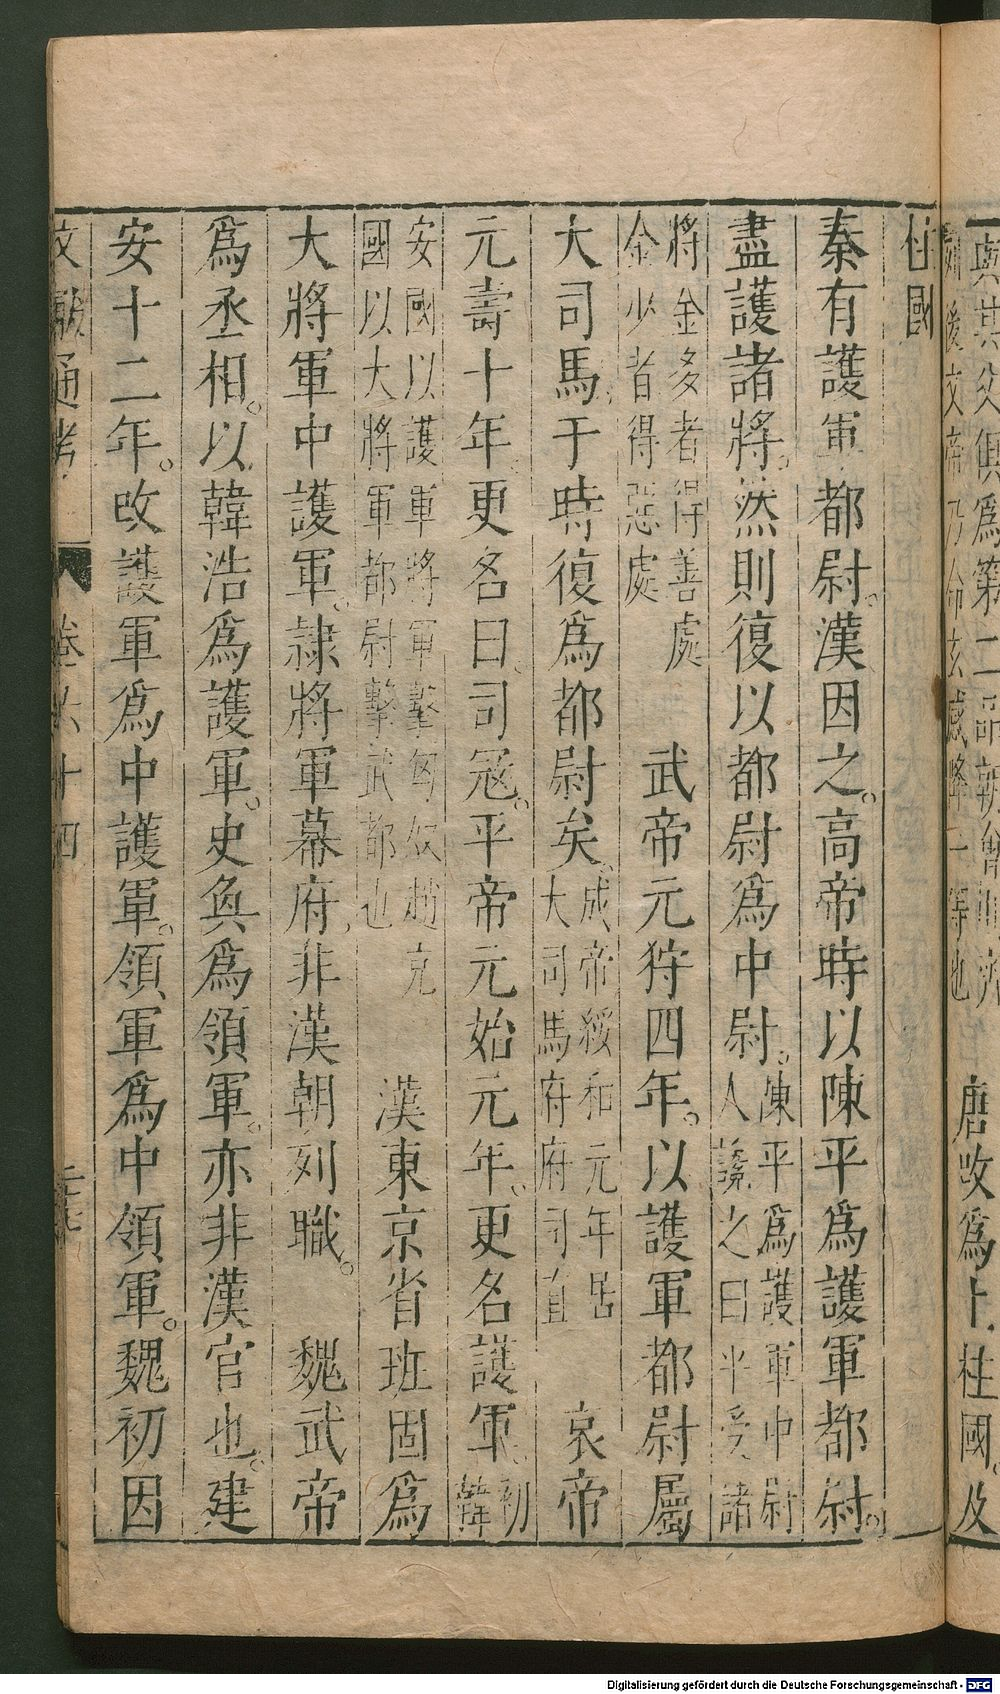 與其父俱爲第二品朝會同齊 唐改爲上柱國。及
後文帝乃命玄感降一等也
柱國
秦有護軍都尉。漢因之。高帝時以陳平爲護軍都尉。
盡護諸將。然則復以都尉爲中尉。陳平爲護軍中尉
人讒之曰平受諸
將金多者得善處
金少者得惡處 武帝元狩四年。以護軍都尉屬
大司馬于時復爲都尉矣。成帝綏和元年居
大司馬府府司直 哀帝
元壽十年。更名曰司冦。平帝元始元年。更名護軍。初
韓
安國以護軍將軍擊匈奴趙充
國以大將軍都尉擊武都也 漢東京省班固爲
大將軍中護軍。隷將軍幕府非漢朝列職。 魏武帝
爲丞相。以韓浩爲護軍。史奐爲領軍。亦非漢官也。建
安十二年。改護軍爲中護軍。領軍爲中領軍。魏初因
文獻通考 卷六十四
Digitalisierung gefördert durch die Deutsche Forschungsgemeinschaft - DFG